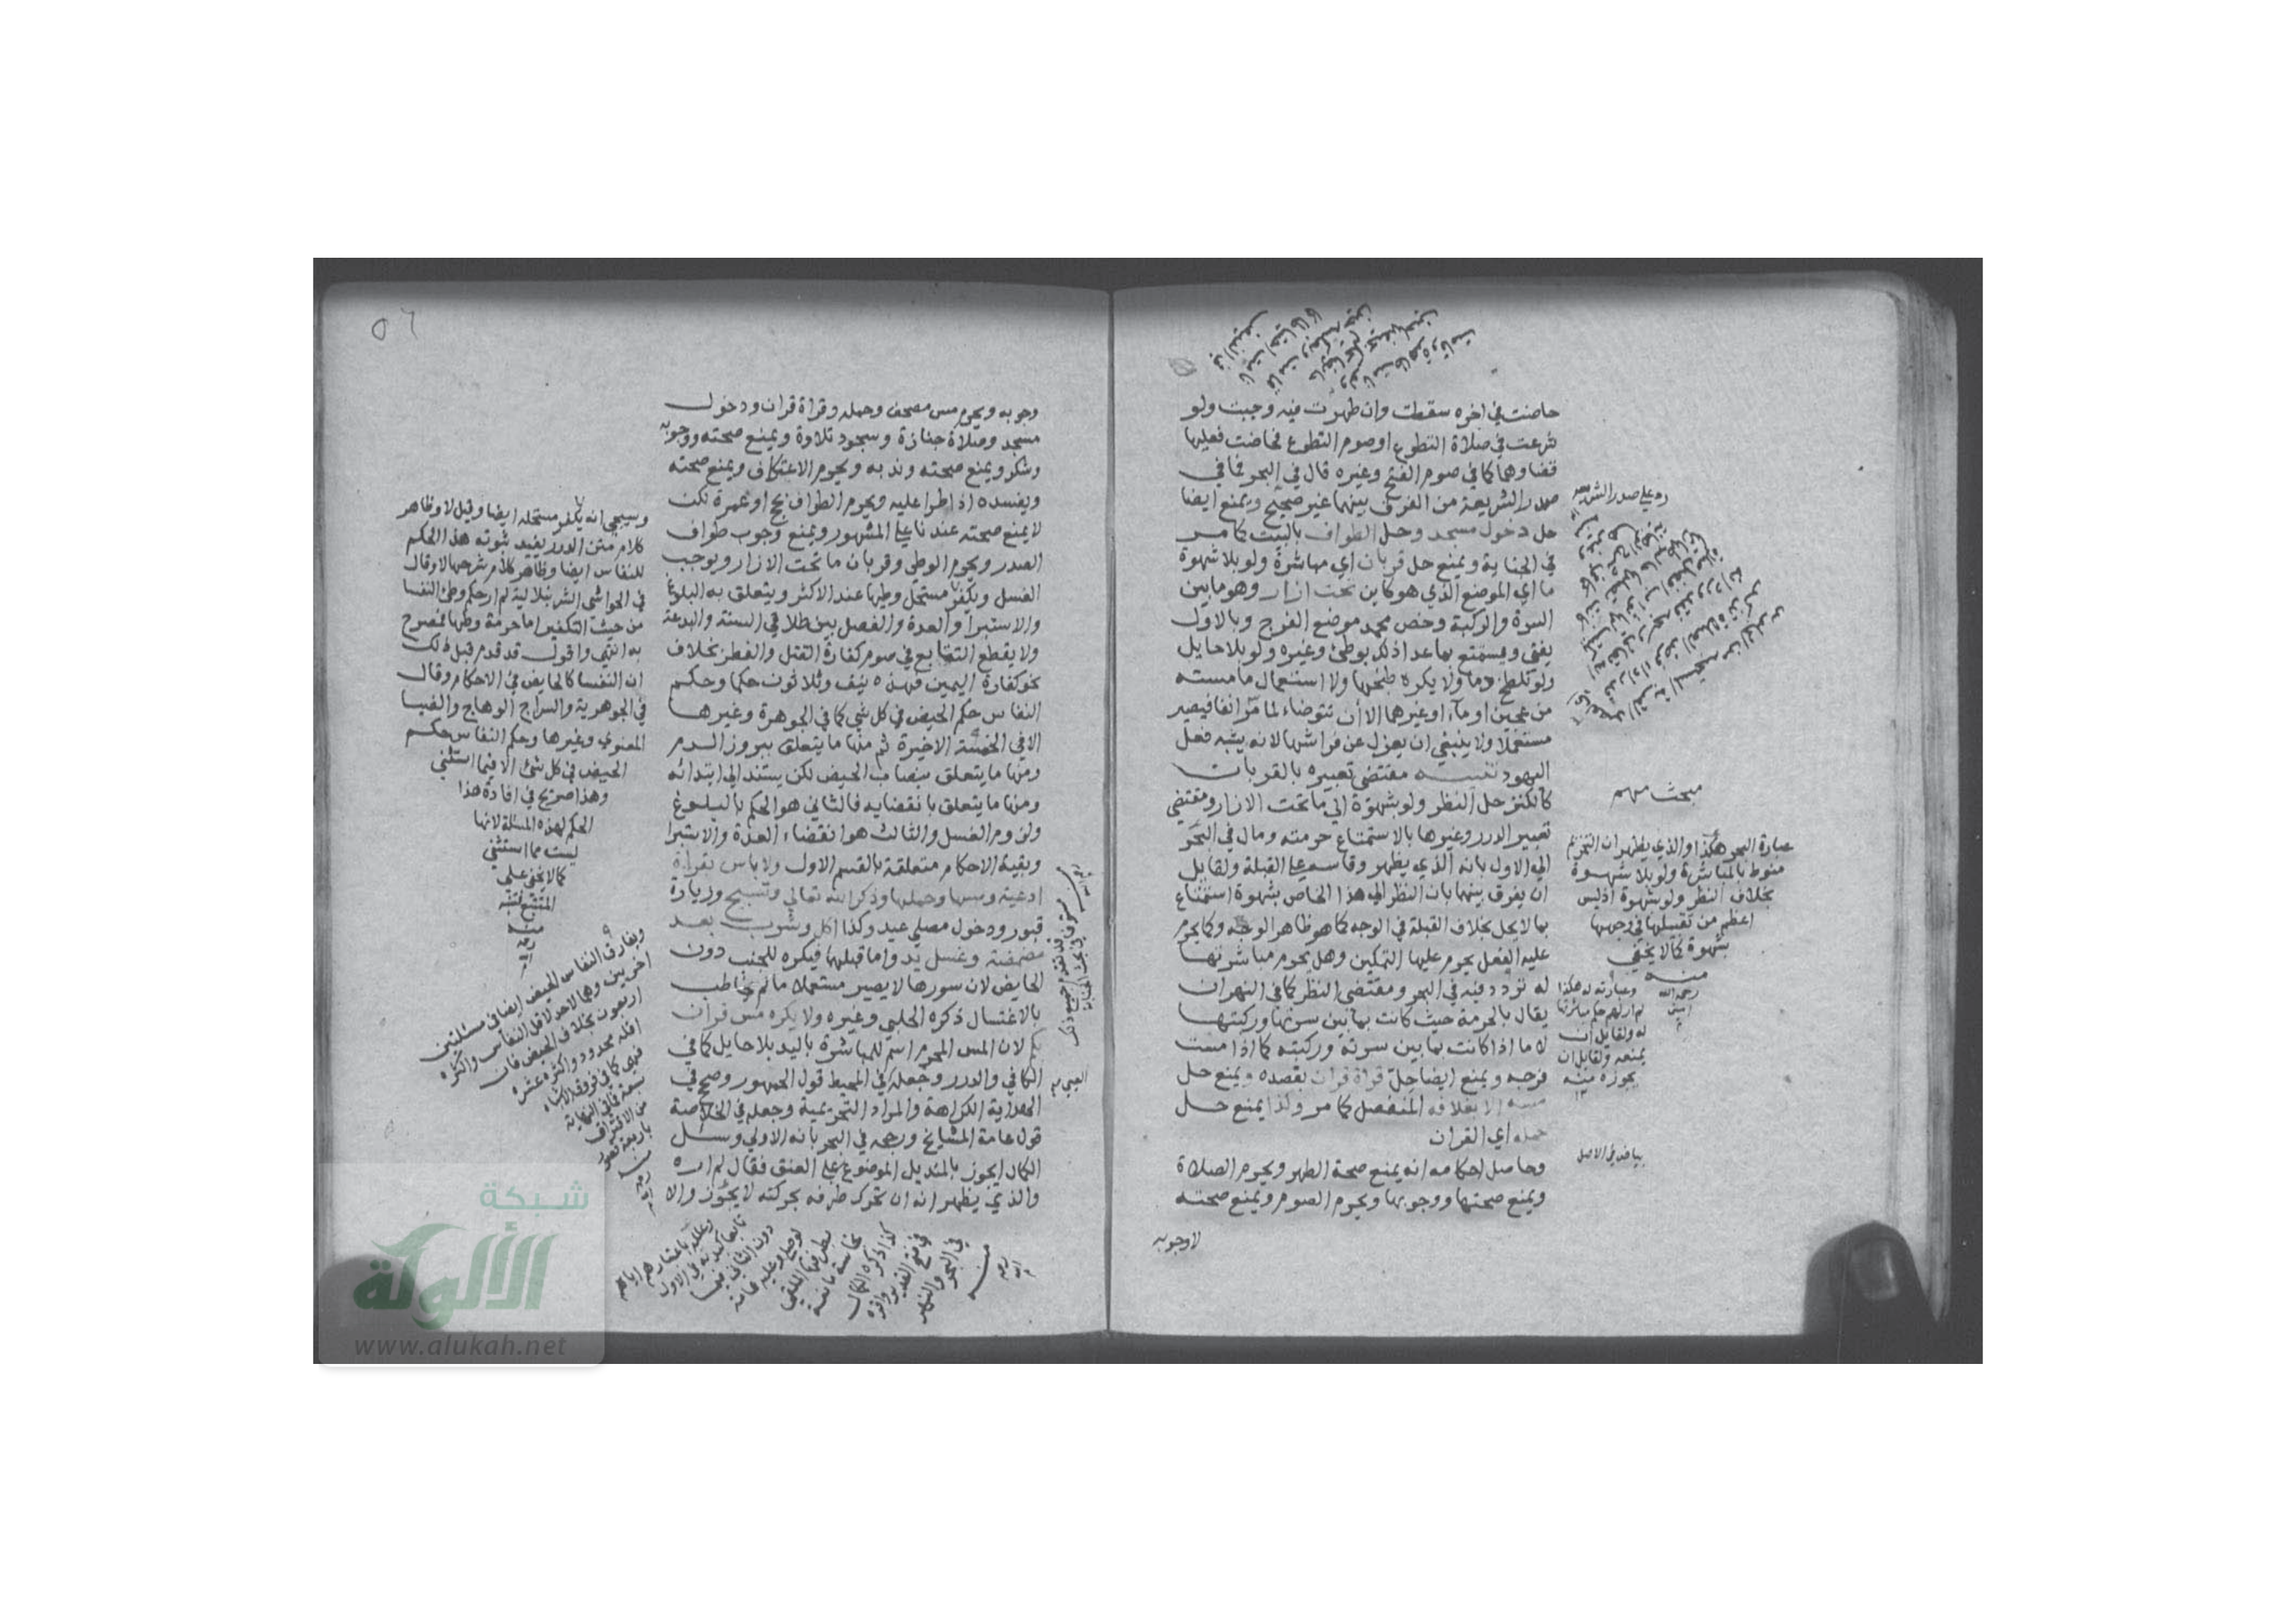 حاضت في اخره سقطت وان طهرت فيه وجبت ولو
شرعت في صلاة التطوع اوصوم التطوع فحاضت فعليها
قضاوهما كما في صوم الفتح وغيره قال في البحر فما في
صدر الشريعة من الفرق بينهما غير صحيح ويمنع ايضا
حل دخول مسجد وحل الطواف بالبيت كما مر
في الجنابة ويمنع حل قربان اي مباشرة ولو بلا شهوة
ما اي الموضع الذي هو كاين تحت ازار وهو ما بين
السرة والركبة وخص محمد موضع الفرج وبالاول
يفتى ويستمتع بما عدا ذلك بوطئ وغيره ولو بلا حايل
ولو تلطخ دما ولا يكره طبخها ولا استعمال ما مسته
من عجين او مآء او غيرهما الا أن تتوضاء لما مر انفا فيصير
مستعملا ولا ينبغي ان يعزل عن فراشها لانه يشبه فعل
اليهود تنبيه مقتضى تعبيره بالقربان
كالكنز حل النظر ولو بشهوة الي ما تحت الازار ومقتضي
تعبير الدرر وغيرها بالاستمتاع حرمته ومال في البحر
الي الاول بانه الذي يظهر وقاسه علي القبلة ولقايل
ان يفرق بينهما بان النظر الي هذا الخاص بشهوة استمتاع
بما لا يحل بخلاف القبلة في الوجه كما هو ظاهر الوجه وكما يحرم
عليه الفعل يحرم عليها التمكين وهل يحرم مباشرتها
له تردد فيه في البحر ومقتضى النظر كما في النهر ان
يقال بالحرمة حيث كانت بما بين سرتها وركبتها
لا ما اذا كانت بما بين سرته وركبته كما اذا مست
فرجه ويمنع ايضا حل قراة قران بقصده ويمنع حل
مسه الا بغلافه المنفصل كما مر وكذا يمنع حل
حمله اي القران
وحاصل احكامه انه يمنع صحة الطهر ويحرم الصلاة
ويمنع صحتها ووجوبها ويحرم الصوم ويمنع صحته
لا وجوبه
رد على صدر الشريعه
مبحث مهم
عبارة البحر هكذا والذي يظهر ان التحريم
منوط بالمباشرة ولو بلا شهوة
بخلاف النظر ولو بشهوة اذ ليس
اعظم من تقبيلها في وجهها
بشهوة كما لا يخفي
منه
رحمه الله
وعبارته هكذا
لم ار لهم حكم مباشرتها
له ولقايل ان
يمنعه ولقايل ان
يجوزه منه
بياض في الاصل
٥٦
وجوبه ويحرم مس مصحف وحمله وقراة قران ودخول
مسجد وصلاة جنازة وسجود تلاوة ويمنع صحته ووجوبه
وشكر ويمنع صحته وندبه ويحرم الاعتكاف ويمنع صحته
ويفسده اذا طرا عليه ويحرم الطواف بحج او عمرة لكن
لا يمنع صحته عندنا علي المشهور ويمنع وجوب طواف
الصدر ويحرم الوطي وقربان ما تحت الازار ويوجب
الغسل ويكفر مستحل وطيها عند الاكثر ويتعلق به البلوغ
والاستبرا والعدة والفصل بين طلاقي السنة والبدعة
ولا يقطع التتابع في صوم كفارة القتل والفطر بخلاف
نحو كفارة اليمين فهذه نيف وثلاثون حكما وحكم
النفاس حكم الحيض في كل شي كما في الجوهرة وغيرها
الا في الخمسة الاخيرة ثم منها ما يتعلق ببروز الدم
ومنها ما يتعلق بنصاب الحيض لكن يستند الي ابتدائه
ومنها ما يتعلق بانقضايه فالثاني هو الحكم بالبلوغ
ولزوم الغسل والثالث هو انقضاء العدة والاستبرا
وبقية الاحكام متعلقة بالقسم الاول ولا باس بقراة
ادعية ومسها وحملها وذكر الله تعالي وتسبيح وزيارة
قبور ودخول مصلي عيد وكذا اكل وشرب بعد
مضمضة وغسل يد واما قبلهما فيكره للجنب دون
الحايض لان سورها لا يصير مستعملا ما لم تخاطب
بالاغتسال ذكره الحلبي وغيره ولا يكره مس قران
بكم لان المس المحرم اسم للمباشرة باليد بلا حايل كما في
الكافي والدرر وجعله في المحيط قول الجمهور وصحح في
الهداية الكراهة والمراد التحريمية وجعله في الخلاصة
قول عامة المشايخ ورجحه في البحر بانه الاولي وسئل
الكمال ايجوز بالمنديل الموضوع على العنق فقال لم اره
والذي يظهر انه ان تحرك طرفه بحركته لا يجوز والا
وسيجي انه يكفر مستحله ايضا وقيل لا وظاهر
كلام متن الدرر يفيد ثبوته هذا الحكم
للنفاس ايضا وظاهر كلام شرحها لا وقال
في الحواشي الشرنبلالية لم ار حكم وطئ النفسا
من حيث التكفير اما حرمة وطيها فمصرح
به انتهى واقول قد قدم قبل ذلك
ان النفسا كالحايض في الاحكام وقال
في الجوهرية والسراج الوهاج والضيا
المعنوي وغيرها وحكم النفاس حكم
الحيض في كل شئ الا فيما استثني
وهذا صريح في افادة هذا
الحكم لهذه المسئلة لانها
ليست مما استثني
كما لا يخفى على
المتتبع فتنبه
منه
رحمه
الله
ويفارق النفاس الحيض ايضا في مسئلتين
اخريين وهما لا حد لاقل النفاس واكثره
اربعون بخلاف الحيض فان
اقله محدود واكثره عشرة